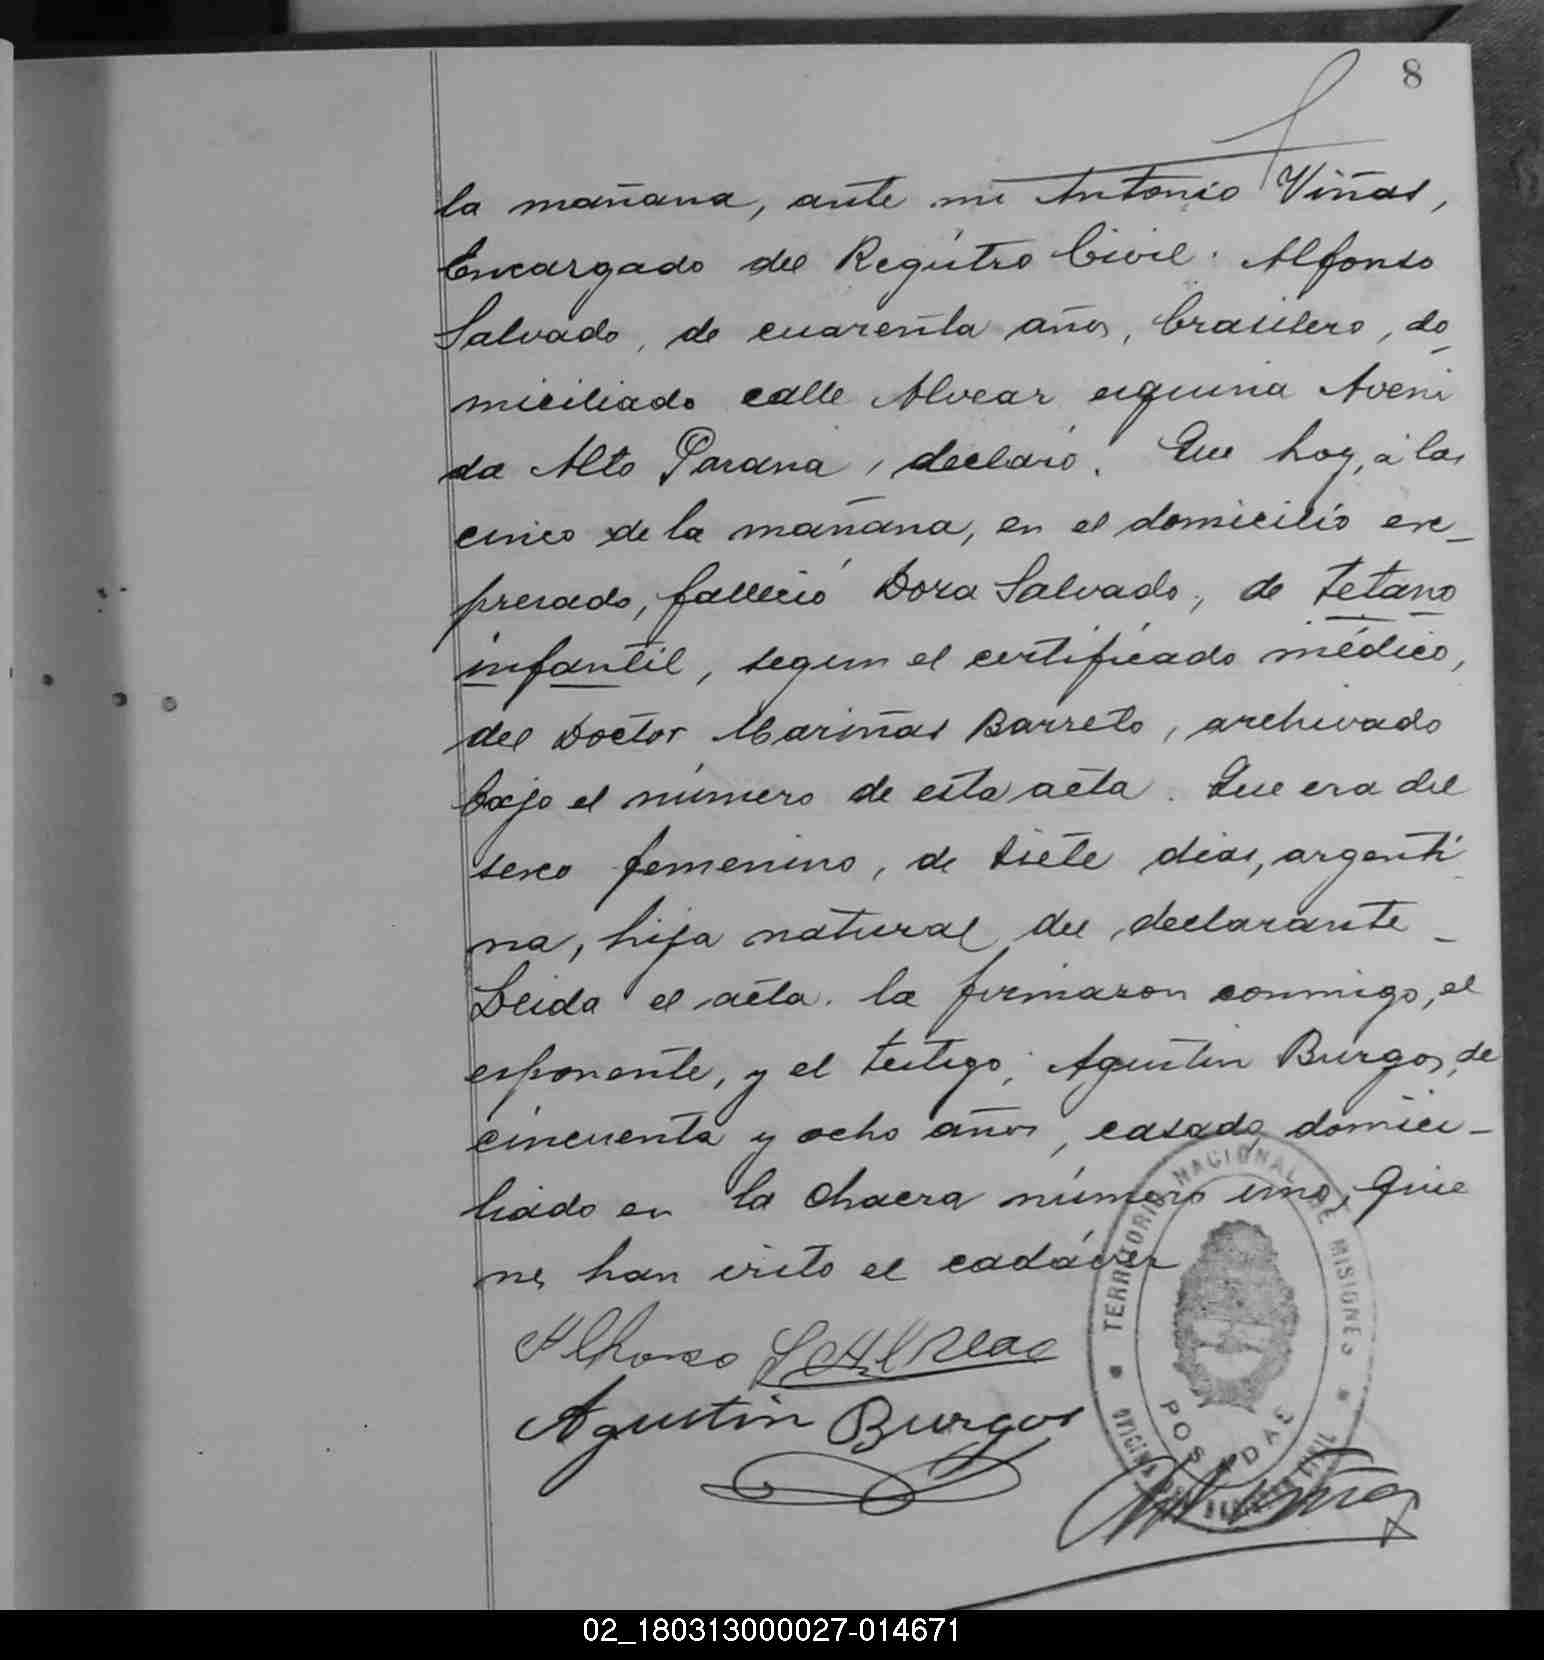 8
la mañana, ante mi Antonio Viñas,
Encargado del Registro Civil. Alfonso
Salvado, de cuarenta años, brasilero, do
miciliado calle Alvear esquina Aveni
da Alto Paraná, declaró. Que hoy, á las
cinco de la mañana, en el domicilio ex-
presado, falleció Dora Salvado, de tetano
infantil, segun el certificado médico,
del Doctor Mariñas Barreto, archivado
bajo el número de esta acta. Que era del
sexo femenino, de siete dias, argenti
na, hija natural del declarante_
Leida el acta. la firmaron conmigo, el
esponente, y el testigo, Agustin Burgos, de
cincuenta y ocho años, casado, domici-
liado en la chacra número uno, quie
nes han visto el cadáver
Alfonso Salvado
Agustin Burgos
TERRITORIO NACIONAL DE MISIONES
POSADAS
OFICINA DEL REGISTRO CIVIL
02_180313000027-014671